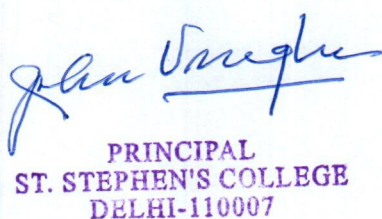 John Varughe
PRINCIPAL
ST. STEPHEN'S COLLEGE
DELHI-110007